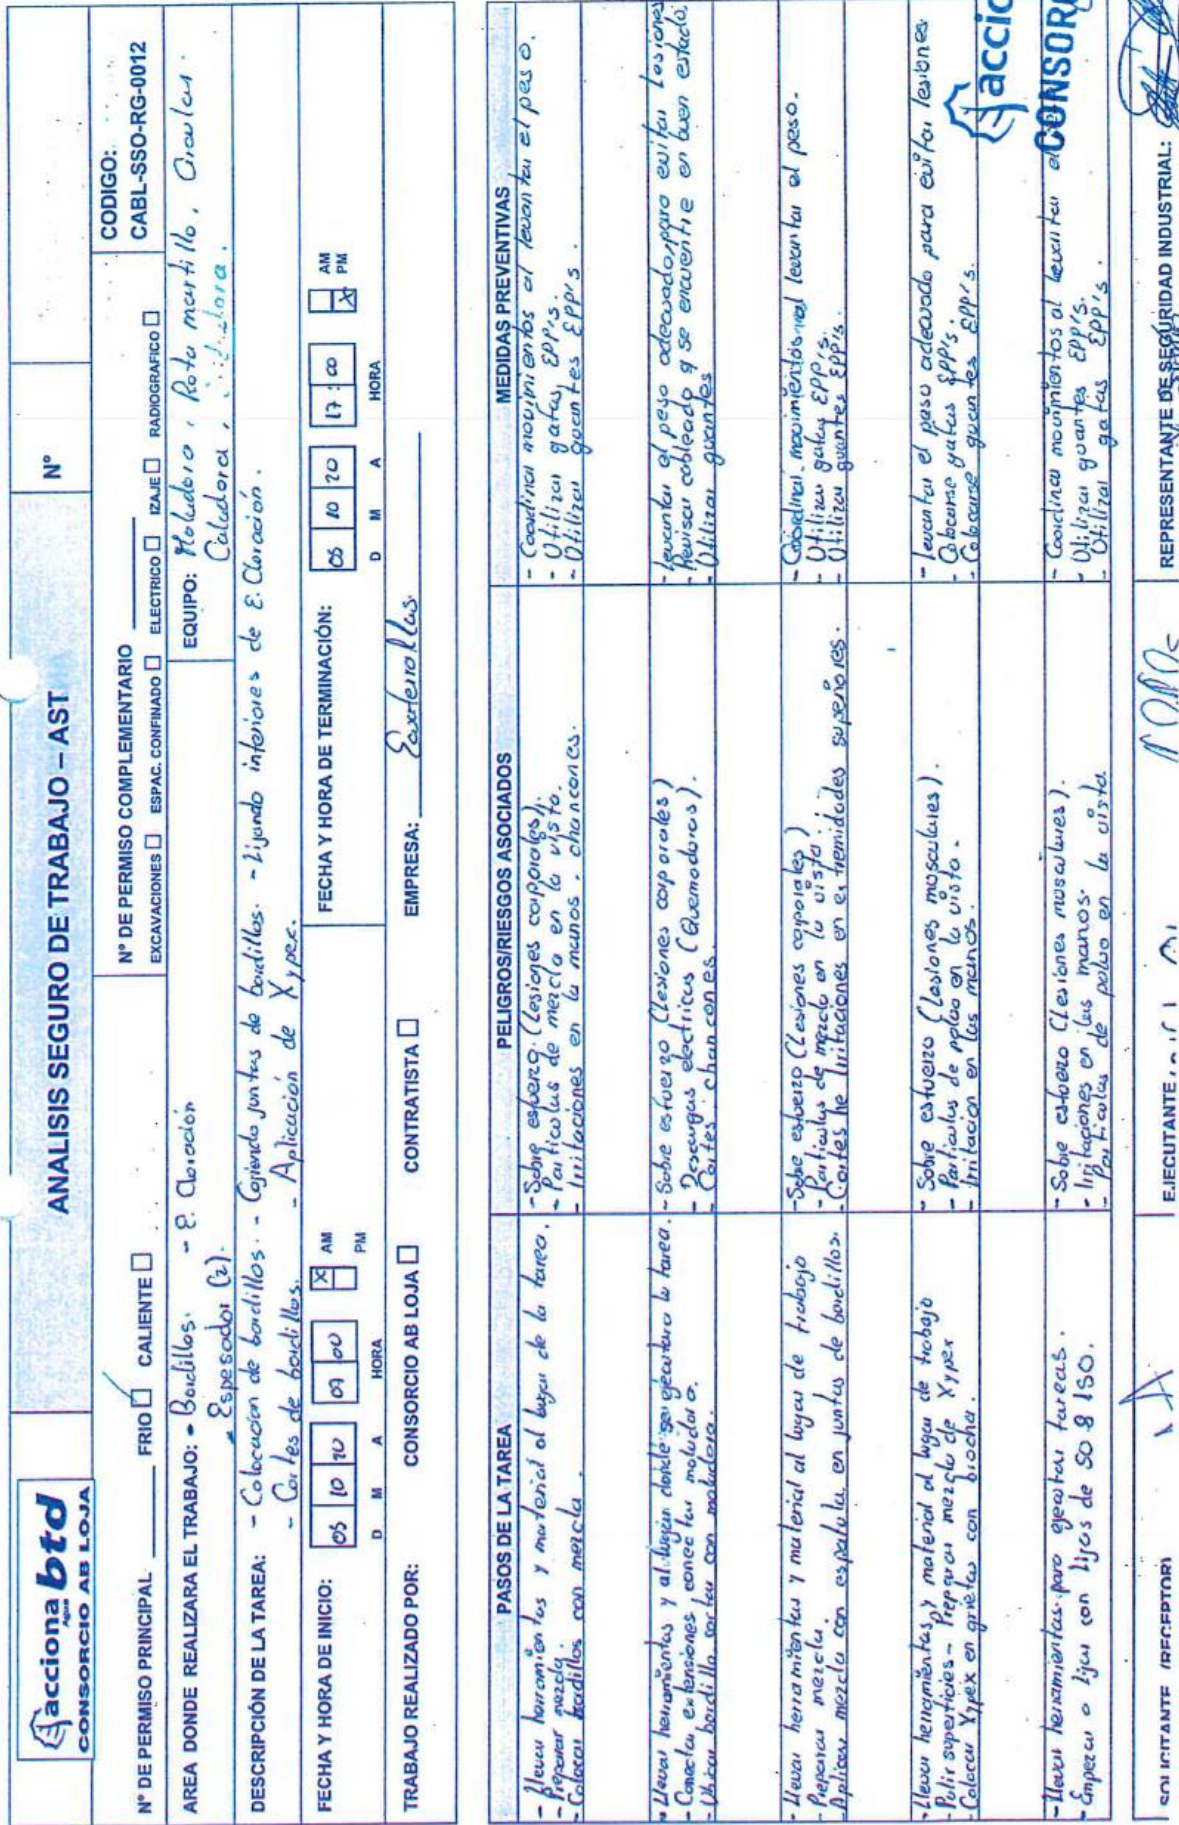 acciona Agua btd
CONSORCIO AB LOJA
ANALISIS SEGURO DE TRABAJO – AST
N°
N° DE PERMISO PRINCIPAL
FRIO
CALIENTE
N° DE PERMISO COMPLEMENTARIO
EXCAVACIONES ESPAC. CONFINADO ELECTRICO IZAJE RADIOGRAFICO
CODIGO:
CABL-SSO-RG-0012
AREA DONDE REALIZARA EL TRABAJO: - Bordillos. - E. Cloración
- Espesador (2).
EQUIPO: Moladora, Roto martillo, Circular.
Caladora,
DESCRIPCIÓN DE LA TAREA: - Colocación de bordillos. - Cogiendo juntas de bordillos. - Lijando interiores de E. Cloración.
- Cortes de bordillos. - Aplicación de Xypex.
FECHA Y HORA DE INICIO: 05 10 20 07 00 X AM
PM
D M A HORA
FECHA Y HORA DE TERMINACIÓN: 05 10 20 17:00 AM
X PM
D M A HORA
TRABAJO REALIZADO POR: CONSORCIO AB LOJA CONTRATISTA EMPRESA:
PASOS DE LA TAREA
- Llevar herramientas y material al lugar de la tarea.
- Preparar mezcla.
- Colocar bordillos con mezcla.
PELIGROS/RIESGOS ASOCIADOS
- Sobre esfuerzo. (Lesiones corporales).
- Particulas de mezcla en la vista.
- Irritaciones en la manos. chancones.
MEDIDAS PREVENTIVAS
- Coordinar movimientos al levantar el peso.
- Utilizar gafas EPP's.
- Utilizar guantes EPP's.
- Llevar herramientas y al lugar donde se ejecutara la tarea.
- Conectar extensiones, conectar moladora.
- Ubicar bordillo, cortar con moladora.
- Sobre esfuerzo (Lesiones corporales)
- Descargas electricas (Quemaduras).
- Cortes, chancones
- Levantar el peso adecuado, para evitar Lesiones
- Revisar cableado q se encuentre en buen estado.
- Utilizar guantes
- Llevar herramientas y material al lugar de trabajo
- Preparar mezcla.
- Aplicar mezcla con espatula, en juntas de bordillos.
- Sobre esfuerzo (Lesiones corporales)
- Particulas de mezcla en la vista
- Cortes he Irritaciones en extremidades superiores.
- Coordinar movimientos al levantar el peso.
- Utilizar gafas EPP's.
- Utilizar guantes EPP's.
- Llevar herramientas y material al lugar de trabajo
- Pulir superficies - Preparar mezcla de Xypex
- Colocar Xypex en grietas con brocha.
- Sobre esfuerzo (Lesiones musculares).
- Particulas de polvo en la vista.
- Irritacion en las manos.
- Levantar el peso adecuado para evitar lesiones.
- Colocarse gafas EPP's.
- Colocarse guantes EPP's.
- Llevar herramientas para ejecutar tareas.
- Empezar a lijar con lijas de 50 8 150.
- Sobre esfuerzo (Lesiones musculares).
- Irritaciones en las manos.
- Particulas de polvo en la vista
- Coordinar movimientos al levantar el
- Utilizar guantes EPP's.
- Utilizar gafas EPP's.
accio
CONSOR
SOLICITANTE (RECEPTOR)
EJECUTANTE
REPRESENTANTE DE SEGURIDAD INDUSTRIAL: